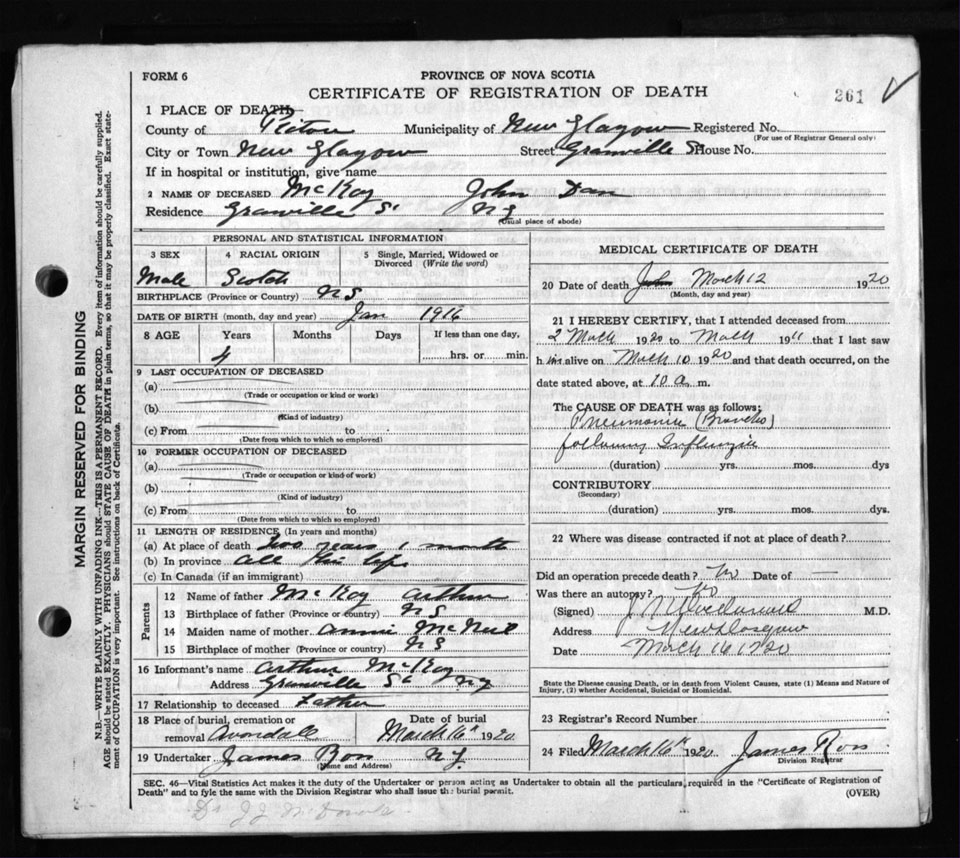 FORM 6
PROVINCE OF NOVA SCOTIA
CERTIFICATE OF REGISTRATION OF DEATH
261
1 PLACE OF DEATH
County of Pictou Municipality of New Glasgow Registered No.
(For use of Registrar General only)
City or Town New Glasgow Street Granville St House No.
If in hospital or institution, give name
2 NAME OF DECEASED McKay John Dan
Residence Granville St N G
(Usual place of abode)
PERSONAL AND STATISTICAL INFORMATION
3 SEX 4 RACIAL ORIGIN 5 Single, Married, Widowed or Divorced (Write the word)
Male Scotch
BIRTHPLACE (Province or Country) N S
DATE OF BIRTH (month, day and year) Jan 1916
8 AGE Years Months Days If less than one day,
4 hrs. or min.
9 LAST OCCUPATION OF DECEASED
(a)
(Trade or occupation or kind or work)
(b)
(Kind of industry)
(c) From to
(Date from which to which so employed)
10 FORMER OCCUPATION OF DECEASED
(a)
(Trade or occupation or kind or work)
(b)
(Kind of industry)
(c) From to
(Date from which to which so employed)
11 LENGTH OF RESIDENCE (In years and months)
(a) At place of death two years 1 month
(b) In province all his life
(c) In Canada (if an immigrant)
Parents
12 Name of father McKay Arthur
13 Birthplace of father (Province or Country) N S
14 Maiden name of mother Annie McNeil
15 Birthplace of mother (Province or country) N S
16 Informant's name Arthur McKay
Address Granville St N G
17 Relationship to deceased Father
18 Place of burial, cremation or removal Avondale Date of burial March 16th 1920
19 Undertaker James Ross N G
(Name and Address)
MEDICAL CERTIFICATE OF DEATH
20 Date of death March 12 1920
(Month, day and year)
21 I HEREBY CERTIFY, that I attended deceased from
2 March 1920 to March 19" that I last saw
h im alive on March 10 1920 and that death occurred, on the
date stated above, at 10 a. m.
The CAUSE OF DEATH was as follows:
Pneumonia (Broncho)
following Influenza
(duration) yrs. mos. dys
CONTRIBUTORY
(Secondary)
(duration) yrs. mos. dys.
22 Where was disease contracted if not at place of death?
Did an operation precede death? No Date of
Was there an autopsy? No
(Signed) M.D.
Address New Glasgow
Date March 16 1920
State the Disease causing Death, or in death from Violent Causes, state (1) Means and Nature of Injury, (2) whether Accidental, Suicidal or Homicidal.
23 Registrar's Record Number
24 Filed March 16th 1920 James Ross
Division Registrar
SEC. 46—Vital Statistics Act makes it the duty of the Undertaker or person acting as Undertaker to obtain all the particulars required in the "Certificate of Registration of
Death" and to fyle the same with the Division Registrar who shall issue the burial permit. (OVER)
MARGIN RESERVED FOR BINDING
N.B.—WRITE PLAINLY WITH UNFADING INK—THIS IS A PERMANENT RECORD. Every item of information should be carefully supplied.
AGE should be stated EXACTLY. PHYSICIANS should STATE CAUSE OF DEATH in plain terms, so that it may be properly classified. Exact state-
ment of OCCUPATION is very important. See instructions on back of Certificate.